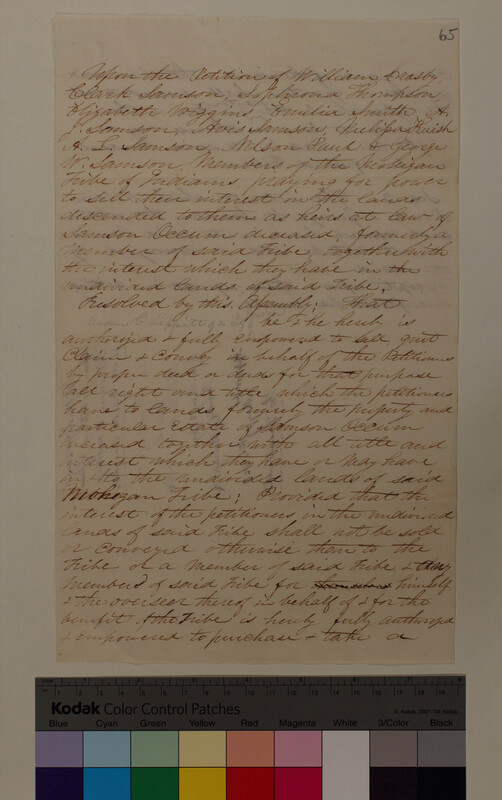 65
Upon the Petition of William Crosby
Clark Samson, Sophrona Thompson
Elizabeth Wiggins, Emilia Smith &
J. Samson, Avis Samson,
A. L. Samson, Nelson Paul & George
W. Samson, Members of the Mohegan
Tribe of Indians, praying for power
to sell their interest in the lands
descended to them as heirs at law of
Samson Occum deceased, formerly a
Member of said Tribe, together with
the interest which they have in the
undivided lands of said Tribe,
Resolved by this Assembly: That
be & he herby is
authorized & fully empowered to sell, quit
Claim & Convey in behalf of the Petitioners
by proper deed or deeds for that purpose
all right and title which the petitioners
have to lands, formerly the property and
particular Estate of Samson Occum
deceased together with all title and
interest which they have or may have
in & to the undivided lands of said
Mohegan Tribe; Provided that the
interest of the petitioners in the undivided
lands of said Tribe shall not be sold
or conveyed otherwise than to the
Tribe or a member of said Tribe, & any
member of said Tribe for himself
& the overseer thereof in behalf of & for the
benefit of the Tribe is herby fully authorized
& empowered to purchase & take a
Kodak Color Control Patches
© Kodak, 2007 TM: Kodak
Blue Cyan Green Yellow Red Magenta White 3/Color Black